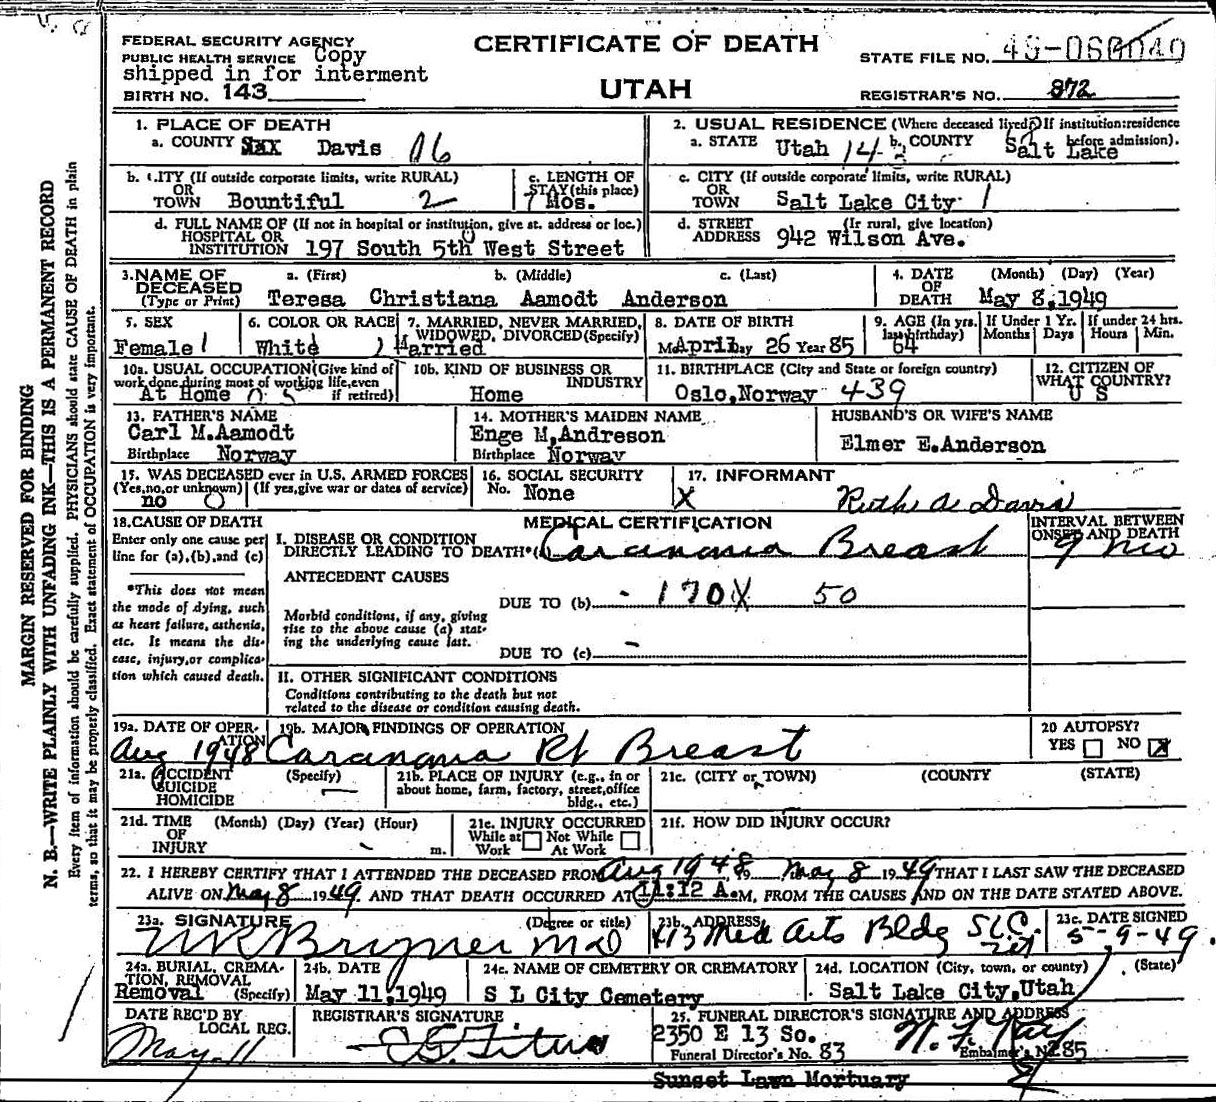 FEDERAL SECURITY AGENCY
PUBLIC HEALTH SERVICE Copy
shipped in for interment
BIRTH NO. 143
CERTIFICATE OF DEATH
UTAH
STATE FILE NO.
REGISTRAR'S NO. 872
MARGIN RESERVED FOR BINDING
N. B.—WRITE PLAINLY WITH UNFADING INK—THIS IS A PERMANENT RECORD
Every item of information should be carefully supplied. PHYSICIANS should state CAUSE OF DEATH in plain
terms, so that it may be properly classified. Exact statement of OCCUPATION is very important.
1. PLACE OF DEATH
a. COUNTY Davis 06
2. USUAL RESIDENCE (Where deceased lived? If institution: residence
before admission).
a. STATE Utah 14 b. COUNTY Salt Lake
b. CITY (If outside corporate limits, write RURAL)
OR
TOWN Bountiful 2
c. LENGTH OF
STAY (this place)
7 Mos.
c. CITY (If outside corporate limits, write RURAL)
OR
TOWN Salt Lake City 1
d. FULL NAME OF (If not in hospital or institution, give st. address or loc.)
HOSPITAL OR
INSTITUTION 197 South 5th West Street
d. STREET (If rural, give location)
ADDRESS 942 Wilson Ave.
3. NAME OF
DECEASED
(Type or Print)
a. (First) b. (Middle) c. (Last)
Teresa Christiana Aamodt Anderson
4. DATE (Month) (Day) (Year)
OF
DEATH May 8, 1949
5. SEX
Female 1
6. COLOR OR RACE
White
7. MARRIED, NEVER MARRIED,
WIDOWED, DIVORCED (Specify)
Married
8. DATE OF BIRTH
April Day 26 Year 85
9. AGE (In yrs.
last birthday)
64
If Under 1 Yr.
Months Days
If under 24 hrs.
Hours Min.
10a. USUAL OCCUPATION (Give kind of
work done during most of working life, even
if retired)
At Home
10b. KIND OF BUSINESS OR
INDUSTRY
Home
11. BIRTHPLACE (City and State or foreign country)
Oslo, Norway 439
12. CITIZEN OF
WHAT COUNTRY?
U S
13. FATHER'S NAME
Carl M.Aamodt
Birthplace Norway
14. MOTHER'S MAIDEN NAME
Enge M,Andreson
Birthplace Norway
HUSBAND'S OR WIFE'S NAME
Elmer E.Anderson
15. WAS DECEASED ever in U.S. ARMED FORCES
(Yes, no, or unknown) (If yes, give war or dates of service)
no 0
16. SOCIAL SECURITY
No. None
17. INFORMANT
X Ruth A Davis
18. CAUSE OF DEATH
Enter only one cause per
line for (a), (b), and (c)
*This does not mean
the mode of dying, such
as heart failure, asthenia,
etc. It means the dis-
ease, injury, or complica-
tion which caused death.
MEDICAL CERTIFICATION
I. DISEASE OR CONDITION
DIRECTLY LEADING TO DEATH* Caranoma Breast
INTERVAL BETWEEN
ONSET AND DEATH
9 mo
ANTECEDENT CAUSES
DUE TO (b) - 170X 50
Morbid conditions, if any, giving
rise to the above cause (a) stat-
ing the underlying cause last.
DUE TO (c) -
II. OTHER SIGNIFICANT CONDITIONS
Conditions contributing to the death but not
related to the disease or condition causing death.
19a. DATE OF OPER-
ATION
Aug 1948
19b. MAJOR FINDINGS OF OPERATION
Caranoma Rt Breast
20 AUTOPSY?
YES NO X
21a. ACCIDENT (Specify)
SUICIDE
HOMICIDE
21b. PLACE OF INJURY (e.g., in or
about home, farm, factory, street, office
bldg., etc.)
21c. (CITY or TOWN) (COUNTY) (STATE)
21d. TIME (Month) (Day) (Year) (Hour)
OF
INJURY m.
21e. INJURY OCCURRED
While at Not While
Work At Work
21f. HOW DID INJURY OCCUR?
22. I HEREBY CERTIFY THAT I ATTENDED THE DECEASED FROM Aug 1948, May 8 1949 THAT I LAST SAW THE DECEASED
ALIVE ON May 8 1949 AND THAT DEATH OCCURRED AT 11:12 A.M, FROM THE CAUSES AND ON THE DATE STATED ABOVE.
23a. SIGNATURE (Degree or title)
Brymer MD
23b. ADDRESS
Med Arts Bldg SLC
23c. DATE SIGNED
5-9-49.
24a. BURIAL, CREMA-
TION, REMOVAL
Removal (Specify)
24b. DATE
May 11, 1949
24c. NAME OF CEMETERY OR CREMATORY
S L City Cemetery
24d. LOCATION (City, town, or county) (State)
Salt Lake City, Utah
DATE REC'D BY
LOCAL REG.
May 11
REGISTRAR'S SIGNATURE
25. FUNERAL DIRECTOR'S SIGNATURE AND ADDRESS
2350 E 13 So.
Funeral Director's No. 83
Embalmer's No 285
Sunset Lawn Mortuary